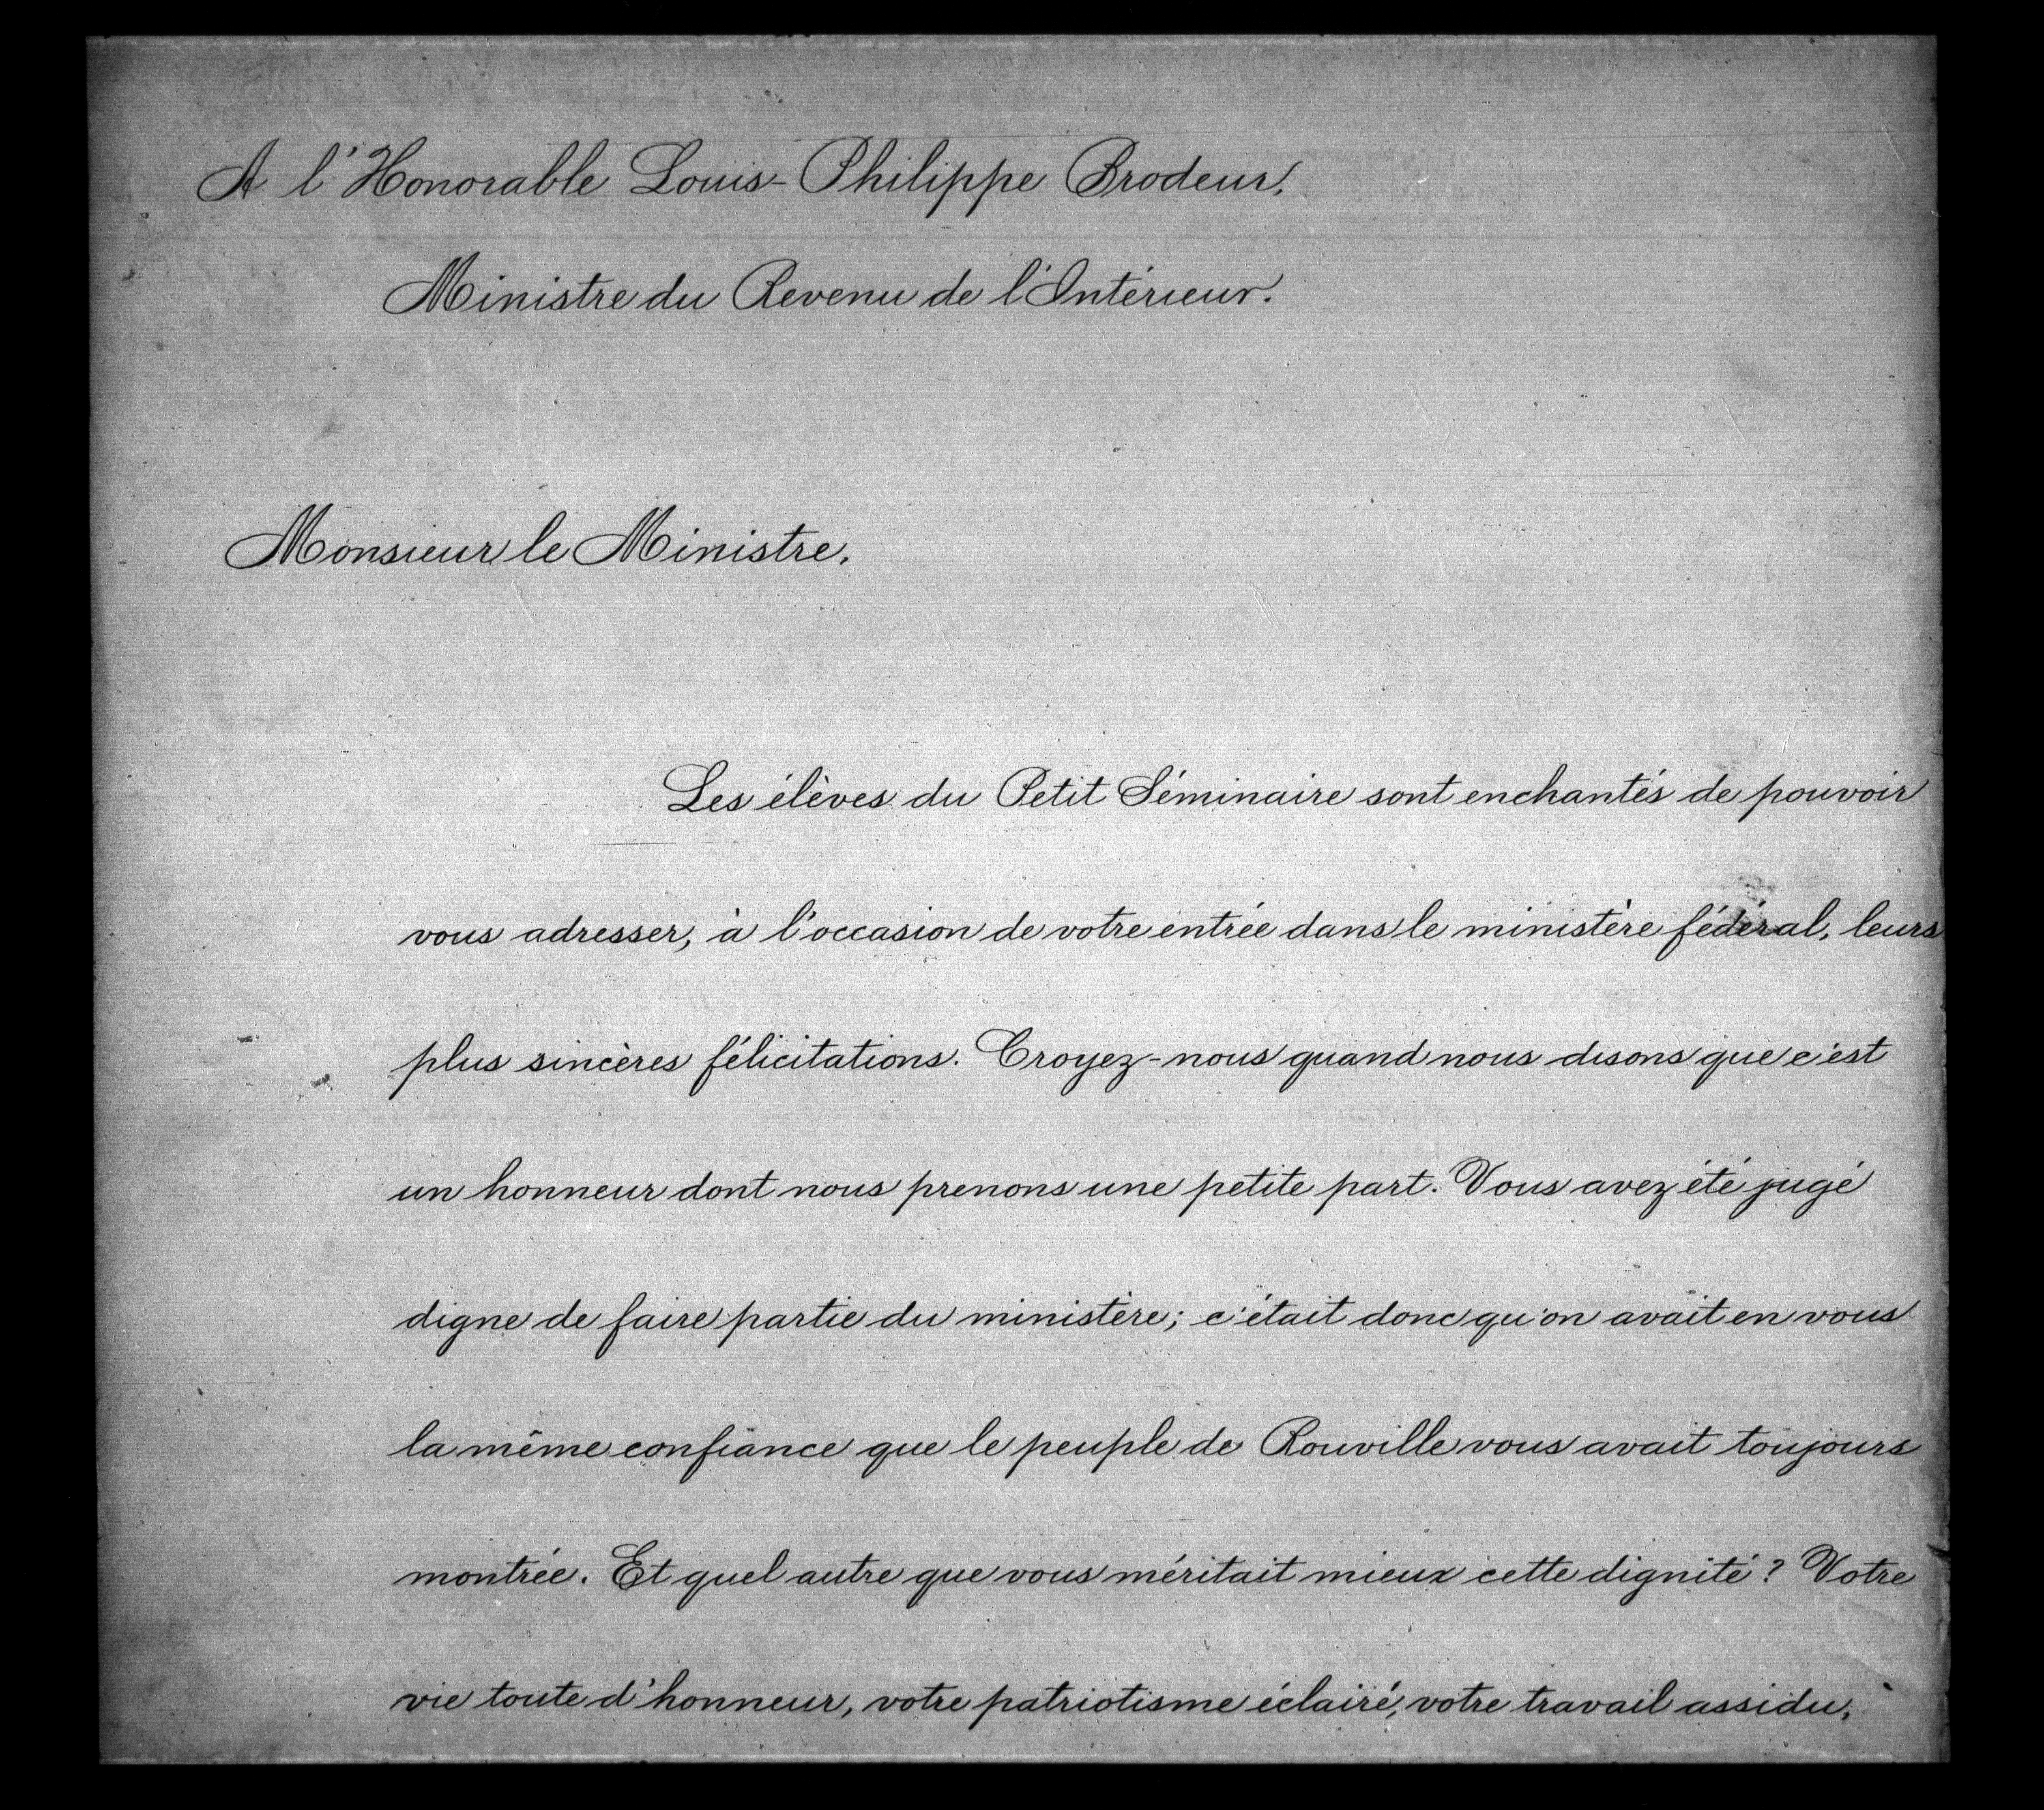 A l'Honorable Louis-Philippe Brodeur,
Ministre du Revenu de l'Intérieur.
Monsieur le Ministre,
Les élèves du Petit Séminaire sont enchantés de pouvoir
vous adresser, à l'occasion de votre entrée dans le ministère fédéral, leurs
plus sincères félicitations. Croyez-nous quand nous disons que c'est
un honneur dont nous prenons une petite part. Vous avez été jugé
digne de faire partie du ministère; c'était donc qu'on avait en vous
la même confiance que le peuple de Rouville vous avait toujours
montrée. Et quel autre que vous méritait mieux cette dignité? Votre
vie toute d'honneur, votre patriotisme éclairé, votre travail assidu,